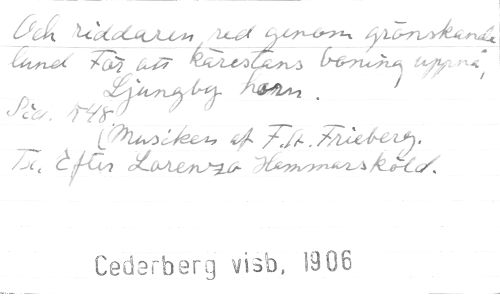 Och riddaren red genom grönskande
lund För att kärestans boning uppnå,
Ljungby horn.
Sid. 548
(Musiken af F.A. Frieberg.
Tr. Efter Lorenzo Hammarsköld.
Cederberg visb, 1906